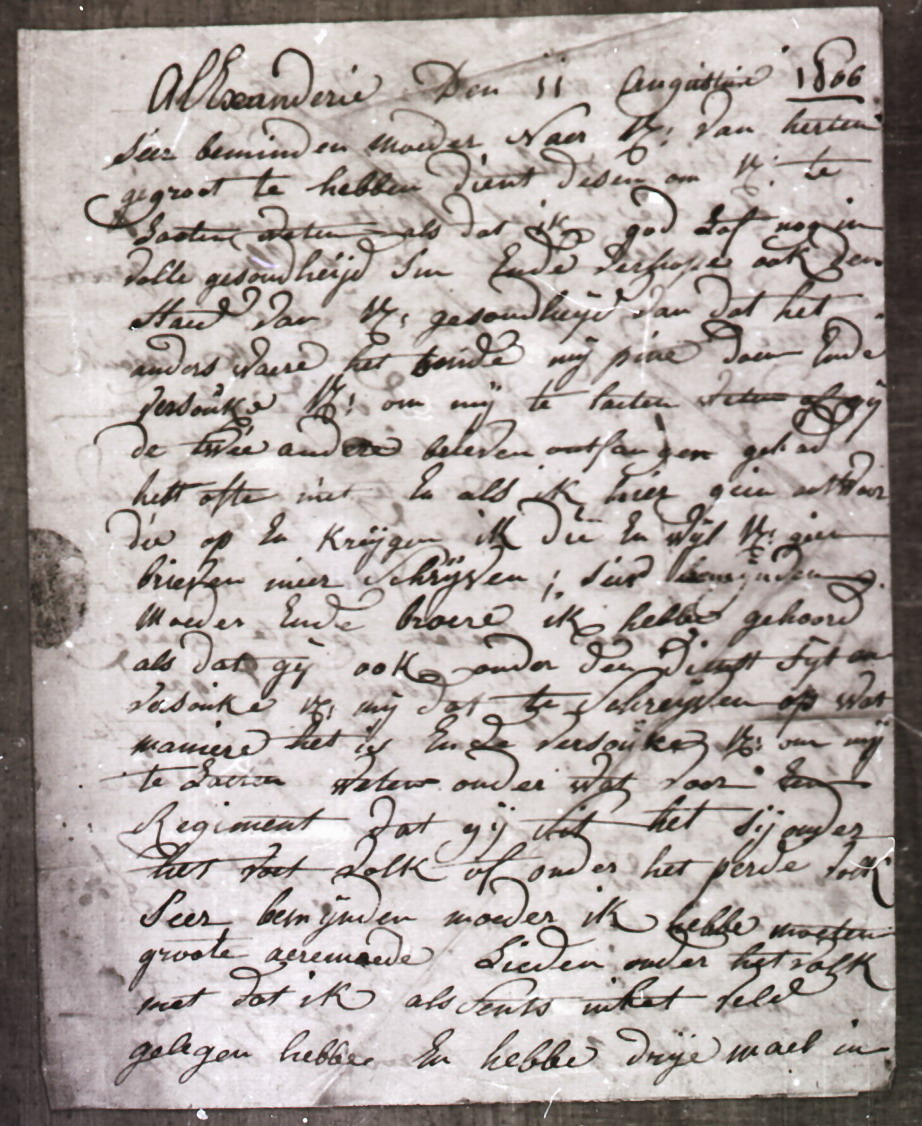 Allexanderie Den 11 Augustus 1806
Seer beminden moeder Naer U: van herten
gegroet te hebben dient desen om U: te
Laeten weten als dat ik god Lof nog in
volle gesondheijd ben Ende verhope ook den
staet van U: gesondheijd van dat het
anders waere het soude mij pine doen Ende
versouke U: om mij te laeten weten of gij
de twee andere brieven ontfangen gehad
hett ofte niet En als ik hier geen antwor
die op En krijgen ik die En wijl U: gien
brieven meer Schrijven ; seer beminden
Moeder Ende broere ik hebbe gehoord
als dat gij ook onder den dienst sijt en
vesouke U: mij dat te Schreijven op wat
maniere het is Ende versouke U: om mij
te Laeten weten onder wat voor Een
Regiment dat gij sit het sij onder
het voet volk of onder het perde volk
Seer bemijnden moeder ik hebbe moeten
groote aeremoede Lieden onder het volk
met dat ik als in het veld
gelegen hebbe En hebbe drije mael in